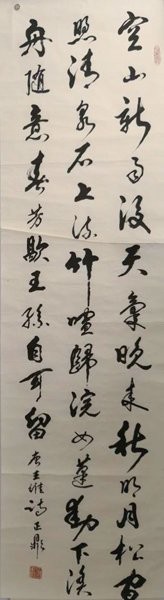 空山新雨後天氣晚来秋明月松間
照清泉石上流竹喧歸浣女蓮動下漁
舟隨意春芳歇王孫自可留
唐王維詩